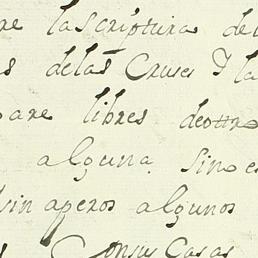 re la scriptura de
s de las Cruses Y la
are libres de otro
alguna, sin e
sin aperos algunos
Con sus Casas